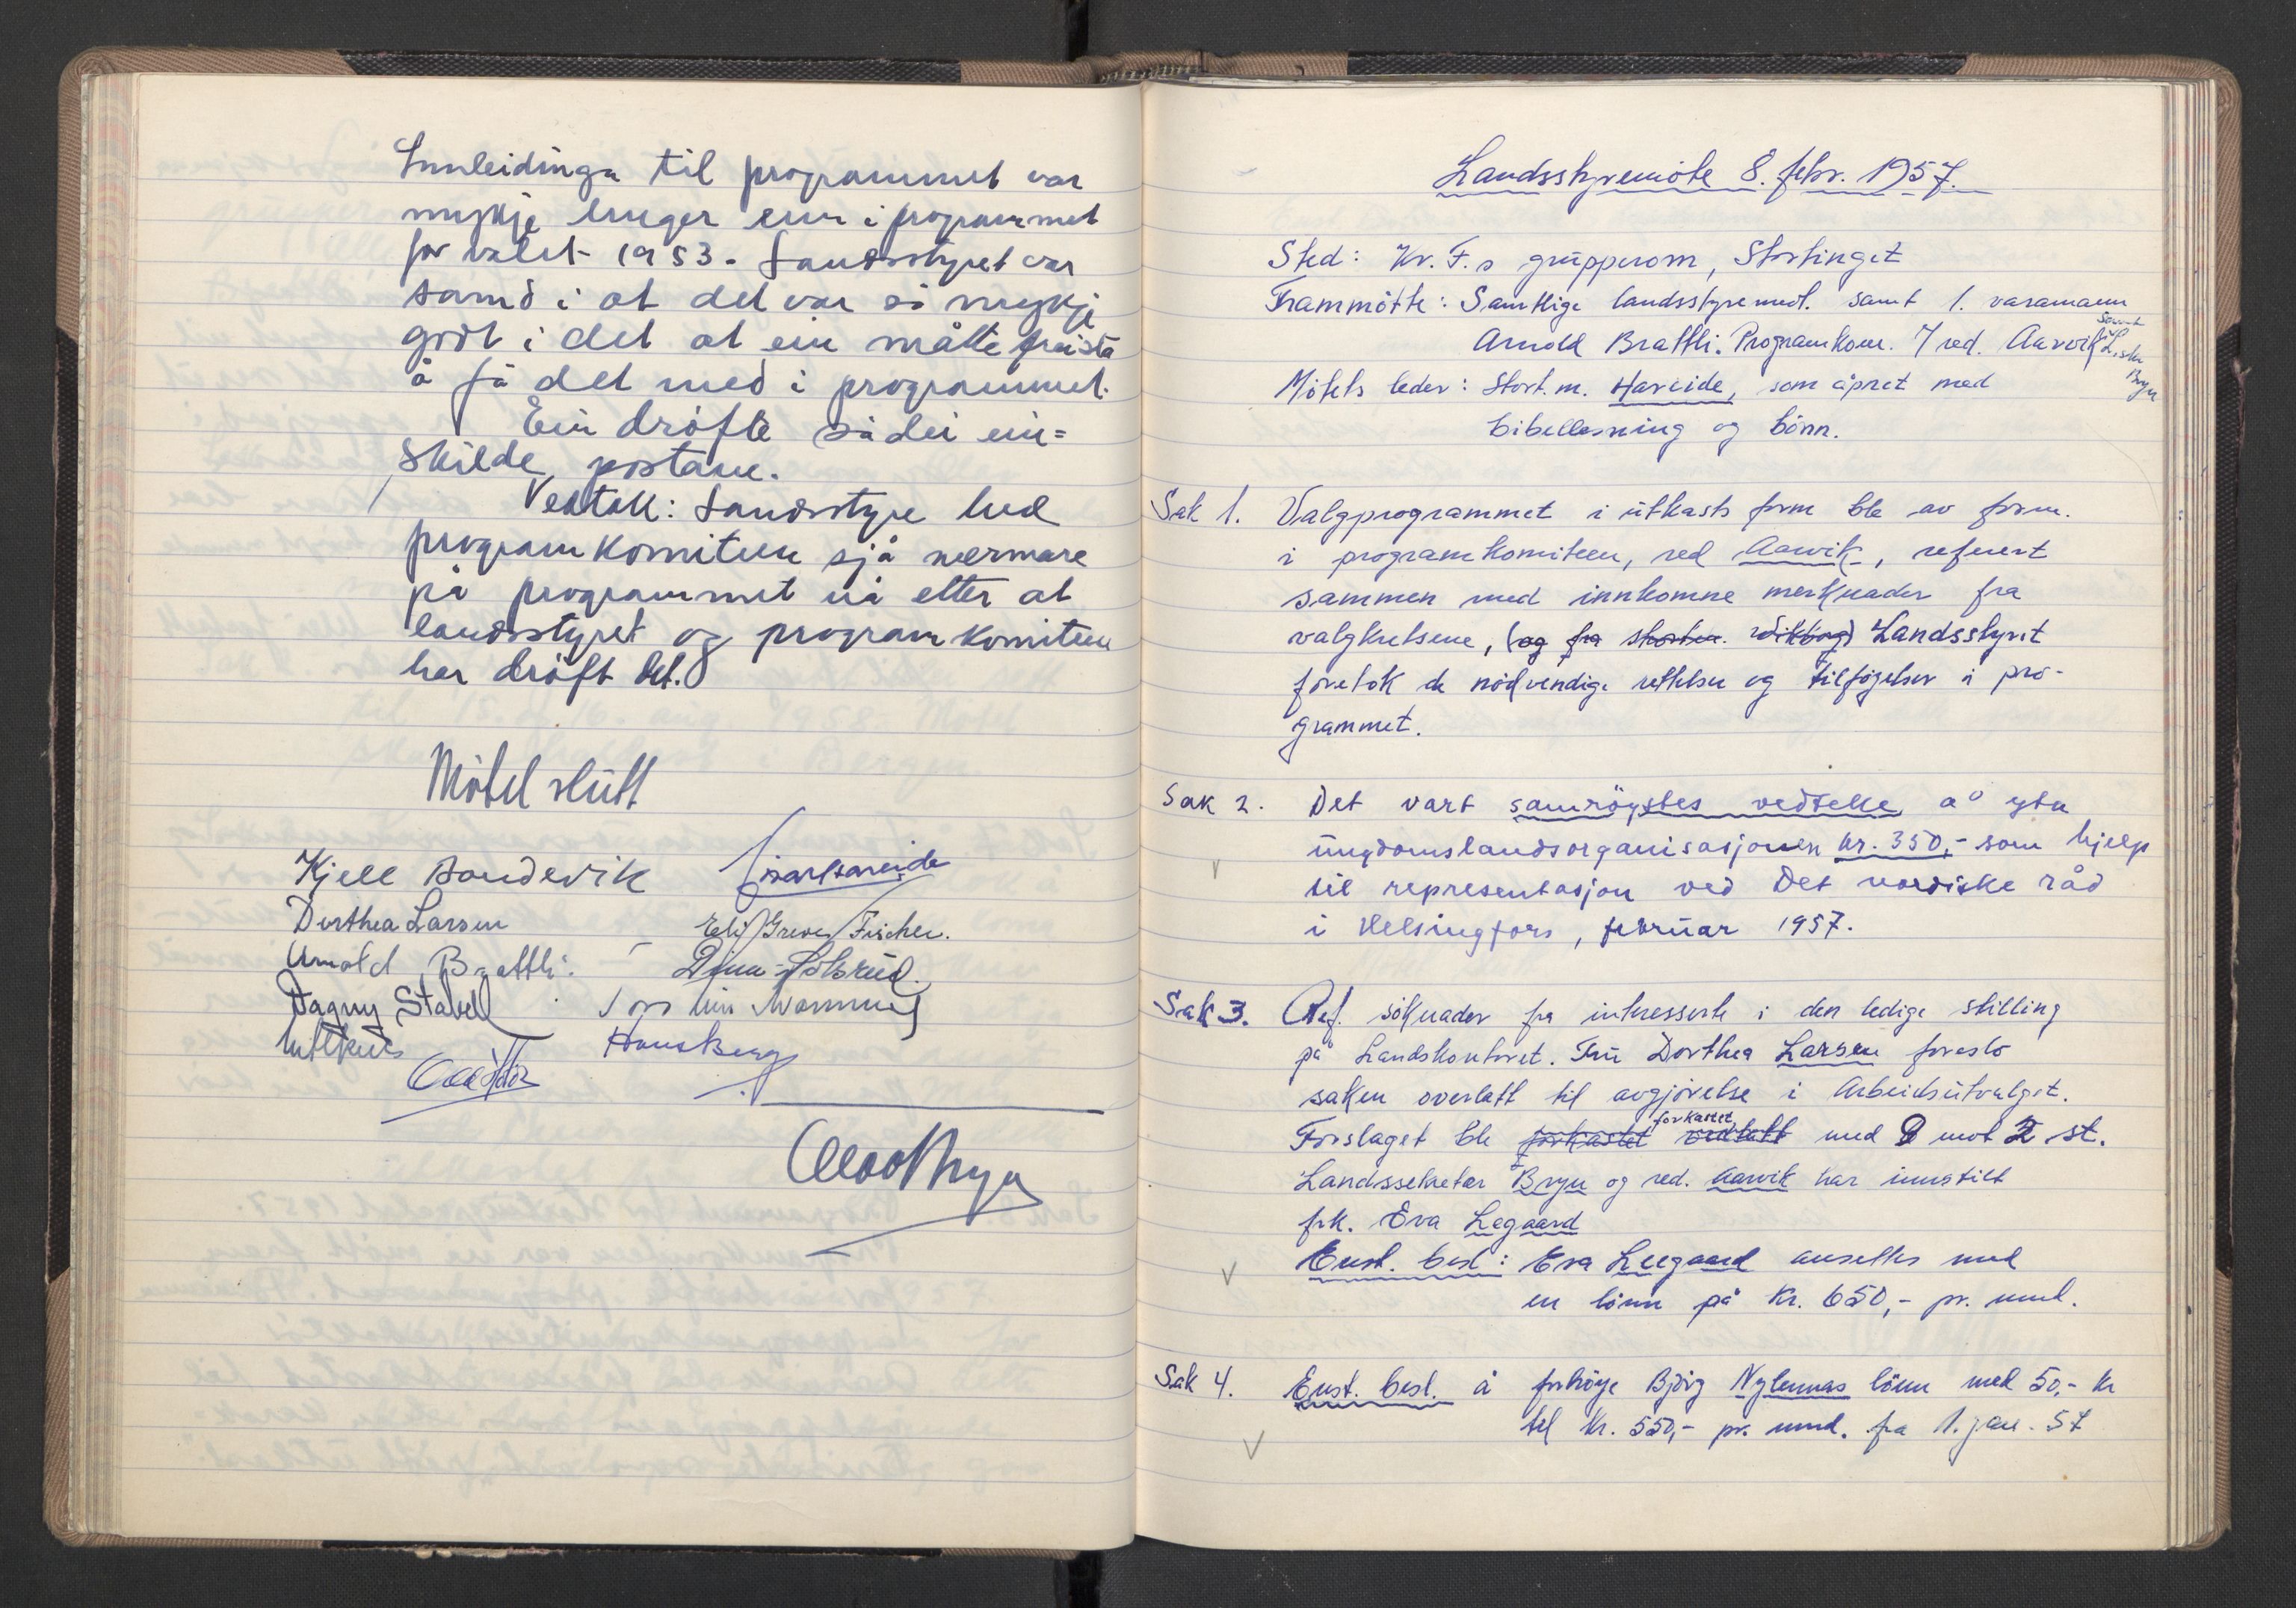 Innleidinga til programmet var
mykje lenger enn i programmet
for valet 1953. Landsstyret var
samd i at det var så mykje
godt i det at ein måtte freista
å få det med i programmet.
Ein drøfte så dei ein=
skilde postane.
Vedtak: Landsstyre bed
programkomiteen sjå nærmare
på programmet nå etter at
landsstyret og programkomiteen
har drøft det.
Møtet slutt
Kjell Bondevik
Einar Hareide
Dorthea Larsen
Elif Greve Fischer.
Arnold Brattli.
Dagny Stabell
Hans Berg
Olav Bryn
Landsstyremöte 8. febr. 1957.
Sted: Kr. F.s grupperom, Stortinget
Frammötte: Samtlige landsstyremedl. samt 1. varamann
Arnold Brattli. Programkom. v/ red. Aarvik samt L.sekr. Bryn
Mötets leder: Stort.m. Hareide, som åpnet med
bibellesning og bönn.
Sak 1. Valgprogrammet i utkasts form ble av form.
i programkomiteen, red Aarvik, referert
sammen med innkomne merknader fra
valgkretsene, (og fra stortm. Wikborg) Landsstyret
foretok de nödvendige rettelser og tilföyelser i pro-
grammet.
Sak 2. Det vart samröystes vedteke å yta
ungdomslandsorganisasjonen kr. 350,- som hjelp
til representasjon ved Det nordiske råd
i Helsingfors, februar 1957.
Sak 3. Ref. söknader fra interesserte i den ledige stilling
på Landskontoret. Fru Dorthea Larsen foreslo
saken overlatt til avgjörelse i Arbeidsutvalget.
Forslaget ble forkastet vedtatt forkastet med 9 mot 2 st.
Landssekretær Bryn og red. Aarvik har innstilt
frk. Eva Legaard
Enst. besl: Eva Leegaard ansettes med
en lönn på kr. 650,- pr. mnd.
Sak 4. Enst. besl. å forhöye Björg Nylennas lönn med 50,- kr
til kr. 550,- pr. mnd. fra 1. jan. 57